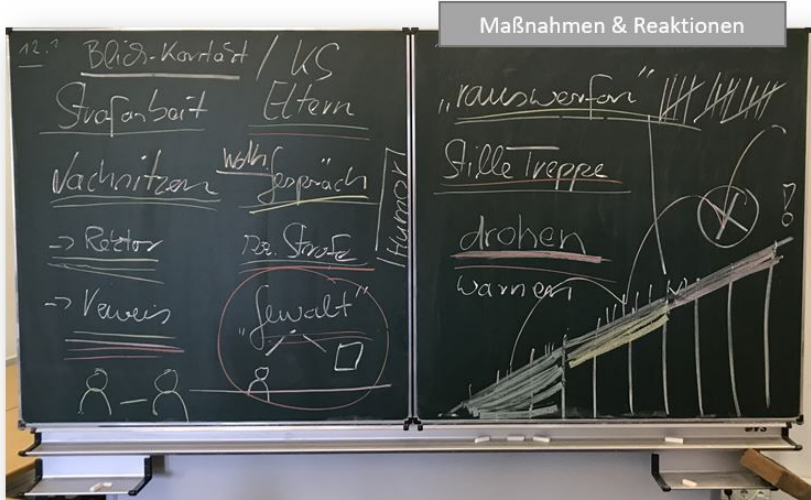 Maßnahmen & Reaktionen
12.1
Blick-Kontakt / KS
Strafarbeit Eltern
Nachsitzen Gespräch
Humor
-> Rektor Strafe
-> Verweis "Gewalt"
"rauswerfen"
Stille Treppe
drohen
warnen
!